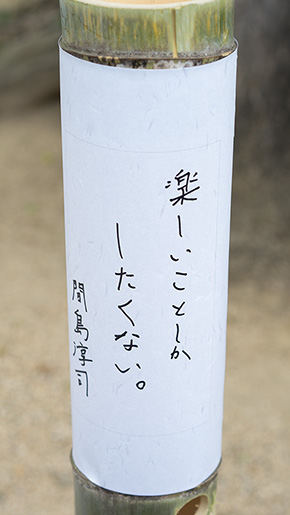 楽しいことしか
したくない。
間島淳司